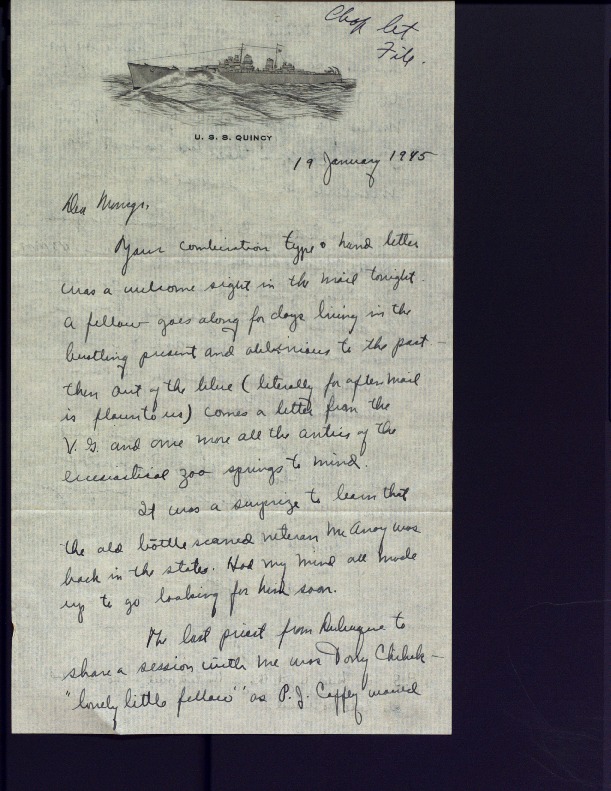 Chap let
File.
U. S. S. QUINCY
19 January 1945
Dea Monsgr.
Your combination type & hand letter
was a welcome sight in the mail tonight.
A fellow goes along for days living in the
bustling present and oblivious to the past -
then out of the blue (literally for often mail
is flown to us) comes a letter from the
V. G. and once more all the antics of the
zoo springs to mind.
It was a surprize to learn that
the old battle scarred veteran McAvoy was
back in the states. Had my mind all made
up to go looking for him soon.
The last priest from Dubuque to
share a session with me was Tony -
"lonely little fellow" as P. J.